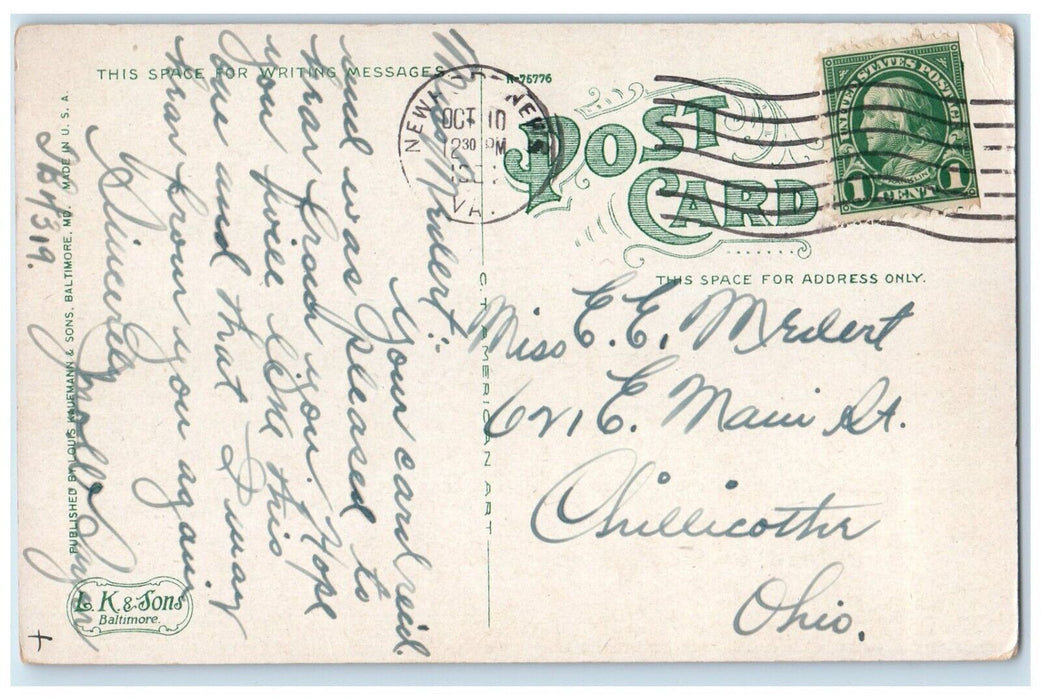 THIS SPACE FOR WRITING MESSAGES.
R-75776
POST CARD
NEWPORT NEWS
OCT 10
12 30 PM
VA.
UNITED STATES POSTAGE
FRANKLIN
1 CENT 1
THIS SPACE FOR ADDRESS ONLY.
Miss E. E. Mrdert
621 E. Main St.
Chillicothe
Ohio.
C.T. AMERICAN ART
Miss Mrdert:-
Your card recd.
and was pleased to
hear from you. Hope
you fvree like this
one and that I may
hear from you again
Sincerely
# 4319.
PUBLISHED BY LOUIS KAUFMANN & SONS, BALTIMORE, MD. MADE IN U.S.A.
L. K. & Sons
Baltimore.
+